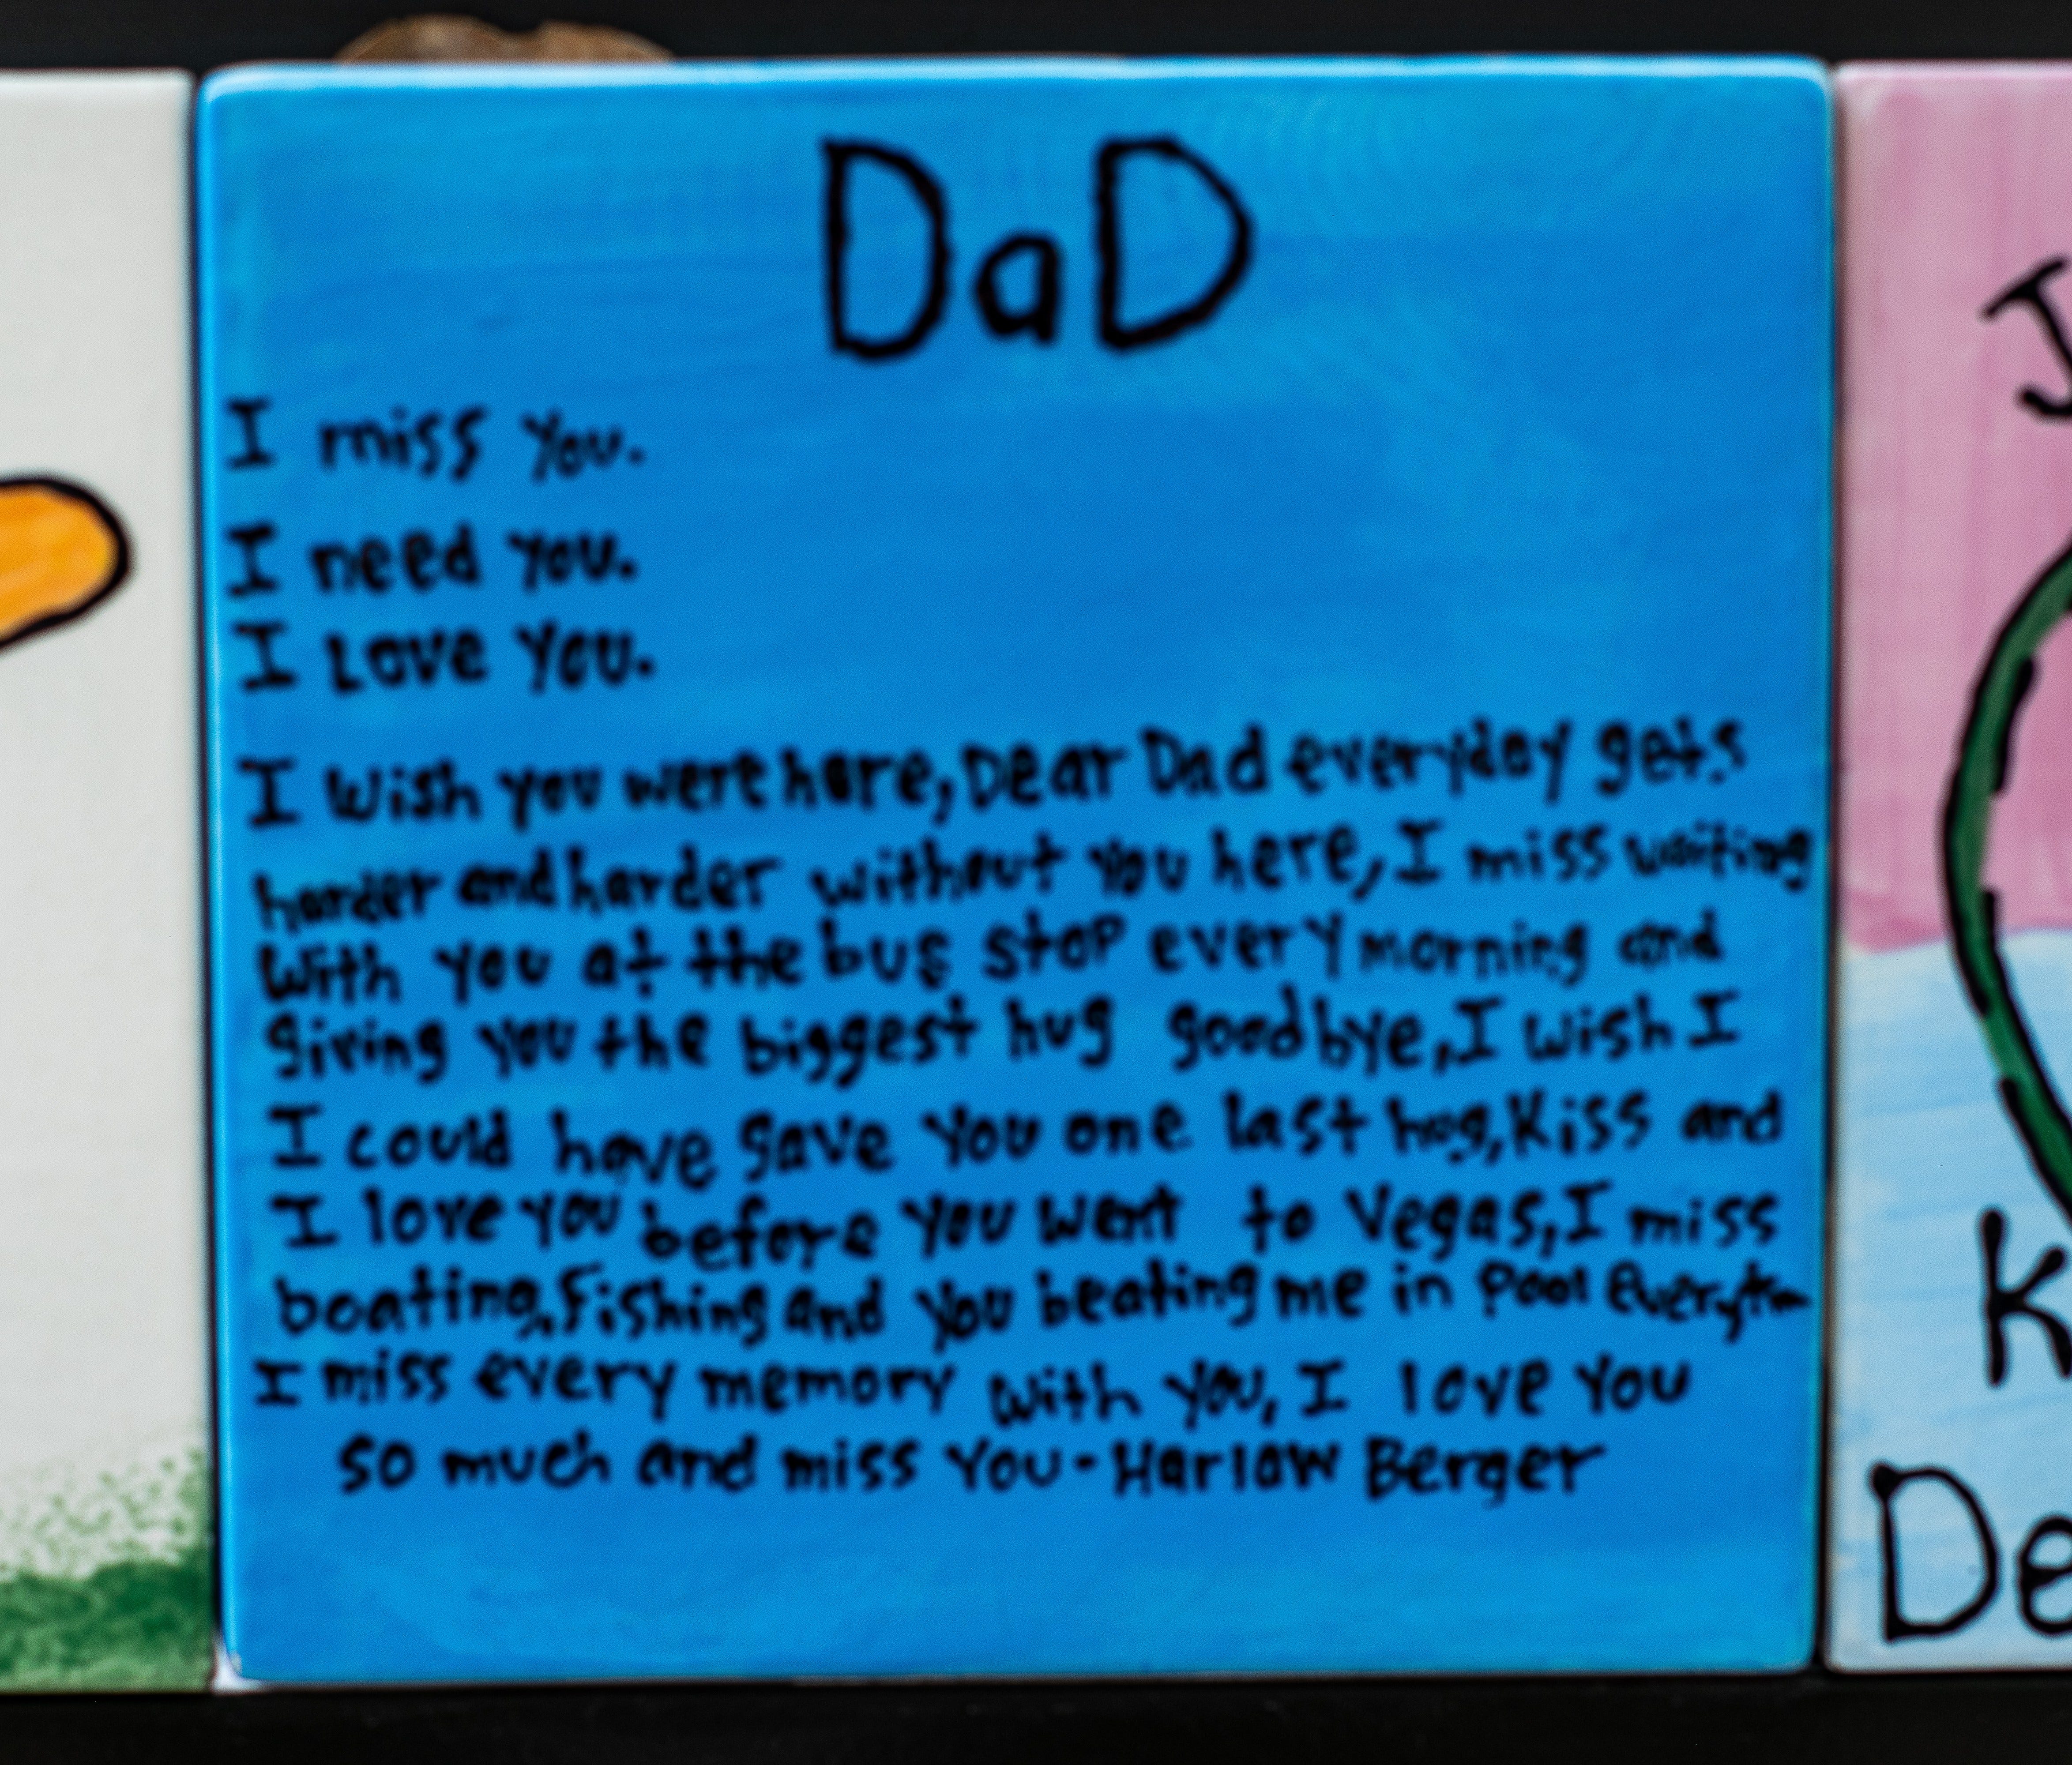 DaD
I miss You.
I need you.
I Love You.
I wish you were here, Dear Dad everyday gets
harder and harder without you here, I miss waiting
With you at the bus stop every morning and
giving you the biggest hug goodbye, I wish I
I could have gave You one last hug, Kiss and
I love you before you went to Vegas, I miss
boating, fishing and you beating me in pool
I miss every memory with you, I love You
so much and miss You - Harlow Berger
J
K
De